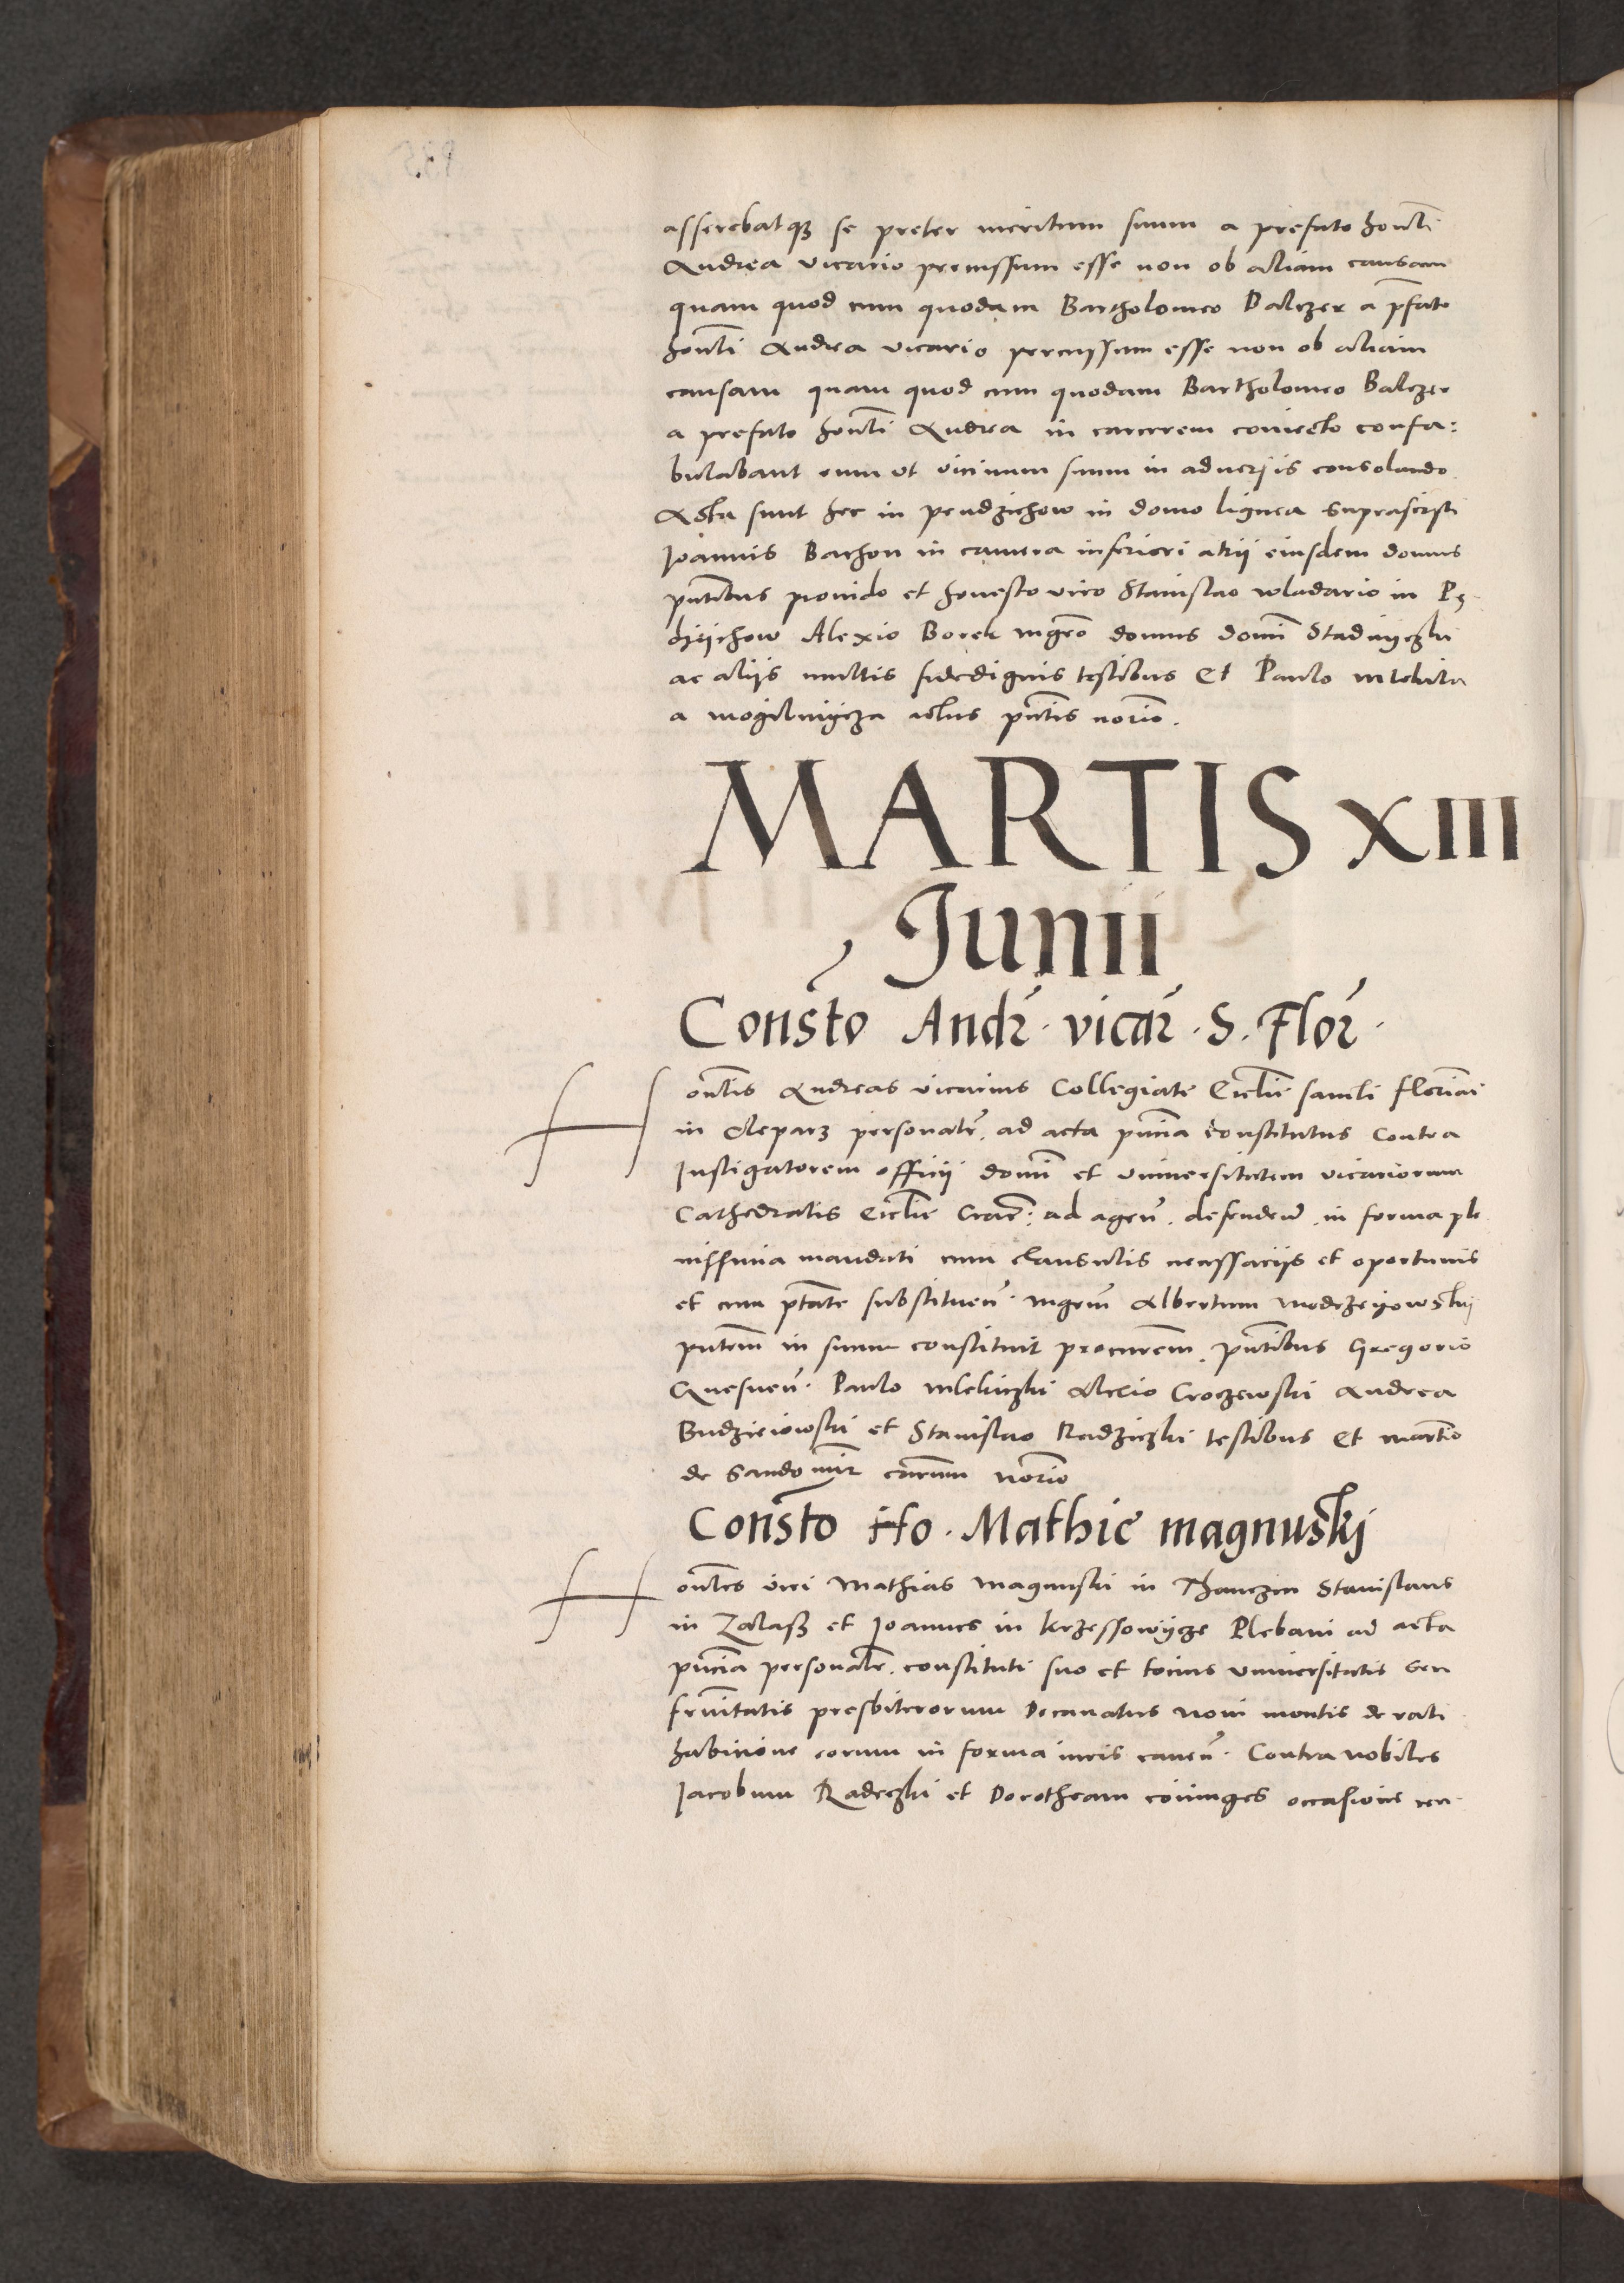 asserebatqꝫ se preter meritum suum a prefato honli
Andrea vicario premssum esse non ob aliam causam
quam quod cum quodam Bartholomeo Dalczer a pfato
honli Andrea vicario percussum esse non ob aliam
causam quam quod cum quodam Bartholomeo Balczer
a prefato honli Andrea in carcerem coniecto confa:
bulabant eum ut vicinum suum in aduersis consolando.
Acta sunt hec in pendzichow in domo lignea suprascripti
Joannis Bachon in camera inferiori atrii eiusdem domus
pntibus prouido et honesto viro Stanislao wladario in Pą
dzijchow Alexio Borek mgro domus domi Stadnyczki
ac aliis multis fidedignis testibus Et Paulo mlekita
a mogilnycza actus pntis norio.
MARTIS XIII
Junii
Consto Andr̄ · vicar̄ · S. Flor̄ ·
H onlis Andreas vicarius Collegiate Ecclie sancti floriani
in Cleparz personalr. ad acta pncia constitutus contra
Instigatorem officii domi et vniuersitatem vicariorum
Cathedralis Ecclie Crac: ad agen. defenden. in forma ple
nissima mandati cum clausulis necessariis et oportunis
et cum ptate substituen. mgrm Albertum modrzeyowskj
pntem in suum constituit procurem. pntibus Gregorio
Quesnen. Paulo mlekiczki Alexio Croczewski Andrea
Budzieiowski et Stanislao Radziczki testibus Et martio
de Sandomir carum norio
Consto Ho · Mathie magnuskj
H onles viri Mathias Magnuski in Thanczin Stanislaus
in Zalasz et Joannes in krzessowycze Plebani ad acta
pncia personalr. constituti suo et tocius vniuersitatis seu
frnitatis presbiterorum Decanatus noui montis de rati
habicione eorum in forma iuris cauen. Contra nobiles
Jacobum Radeczki et Dorotheam coniuges occasione cen-